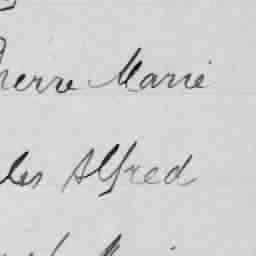 Pierre Marie
les Alfred